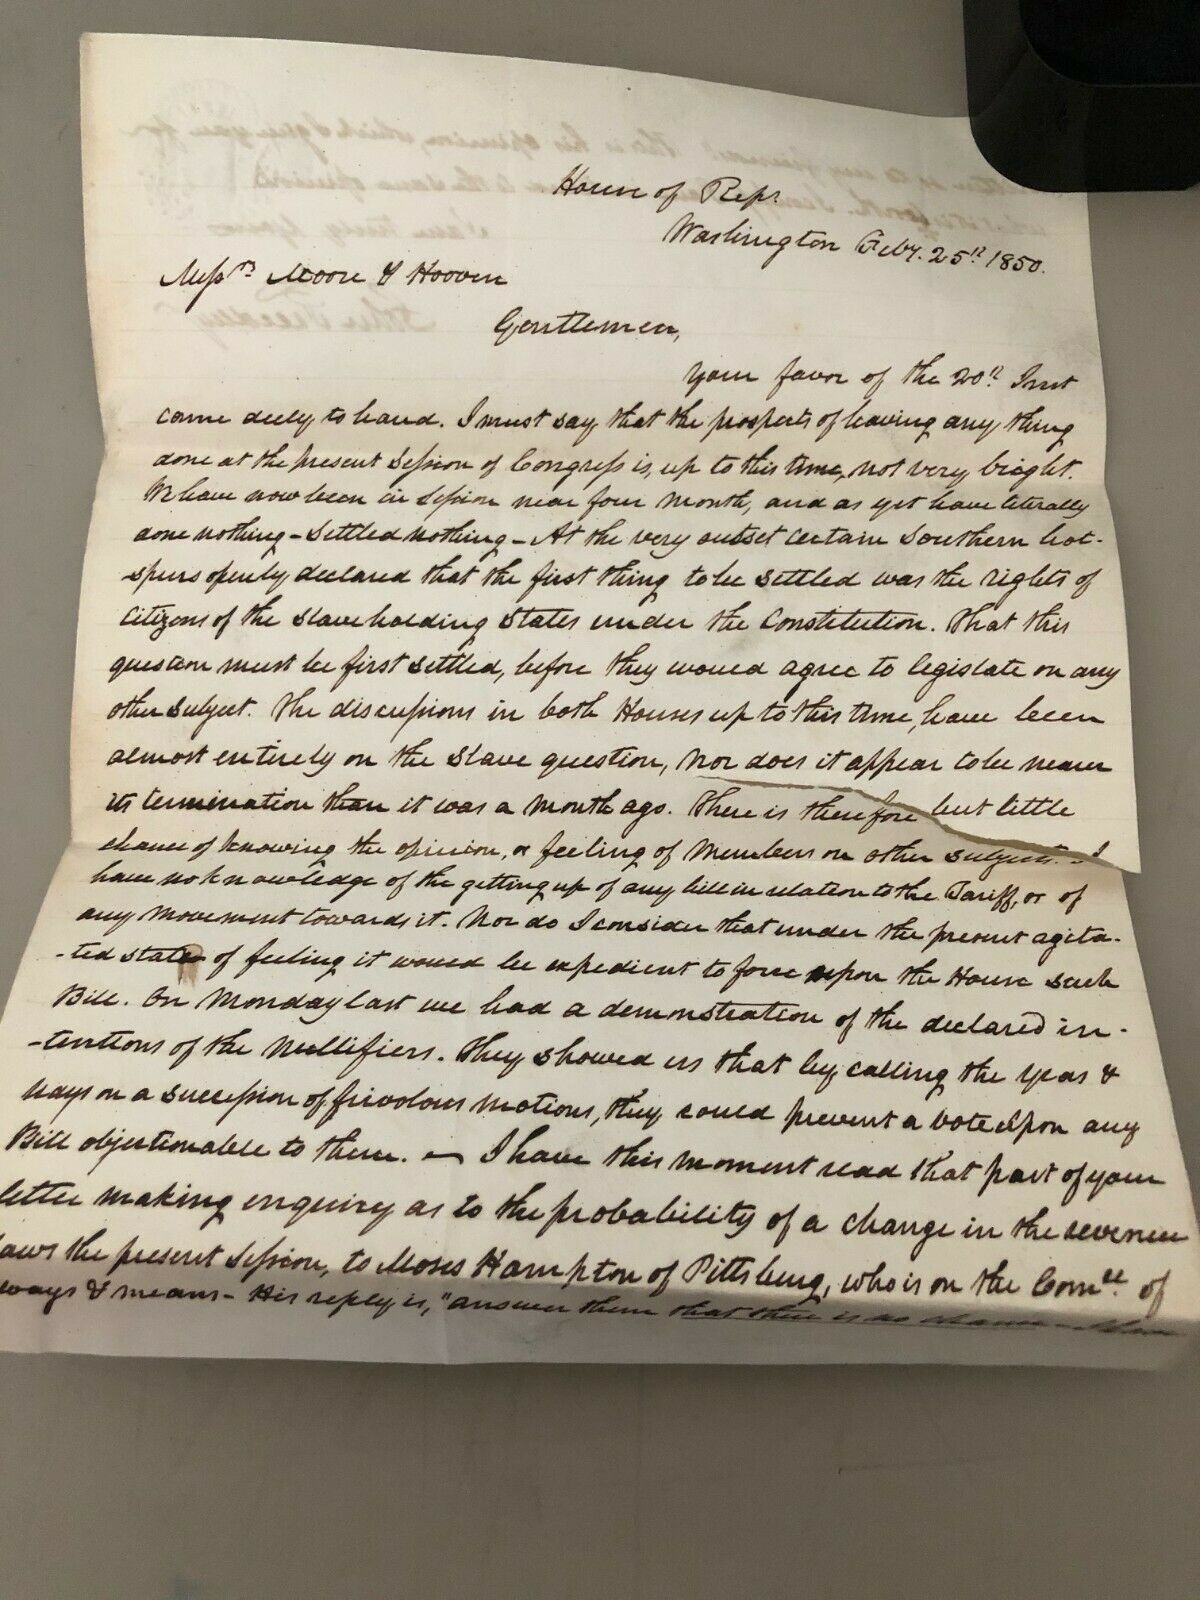 House of Reps
Washington Feby. 25th 1850.
Messrs Moore & Hooven
Gentlemen,
Your favor of the 20th Inst
came duly to hand. I must say that the prospects of having any thing
done at the present Session of Congress is, up to this time, not very bright.
We have now been in Session near four Month, and as yet have literally
done nothing - Settled nothing - At the very outset certain Southern hot-
-spurs openly declared that the first thing to be settled was the rights of
Citizens of the Slaveholding States under the Constitution. That this
question must be first settled, before they would agree to legislate on any
other subject. The discussions in both Houses up to this time, have been
almost entirely on the Slave question, Nor does it appear to be nearer
its termination than it was a Month ago. There is therefore but little
chance of knowing the opinion, or feeling of Members on other subjects. I
have no knowledge of the getting up of any bill in relation to the Tariff, or of
any Movement towards it. Nor do I consider that under the present agita-
-ted state of feeling it would be expedient to force upon the House such
Bill. On Monday last we had a demonstration of the declared in-
-tentions of the Nullifiers. They showed us that by calling the yeas &
nays on a succession of frivolous motions, they could prevent a vote upon any
Bill objectionable to them. — I have this moment read that part of your
letter making enquiry as to the probability of a change in the revenue
laws the present Session, to Moses Hampton of Pittsburg, who is on the Comee. of
ways & means - His reply is, "answer them that there is no chance